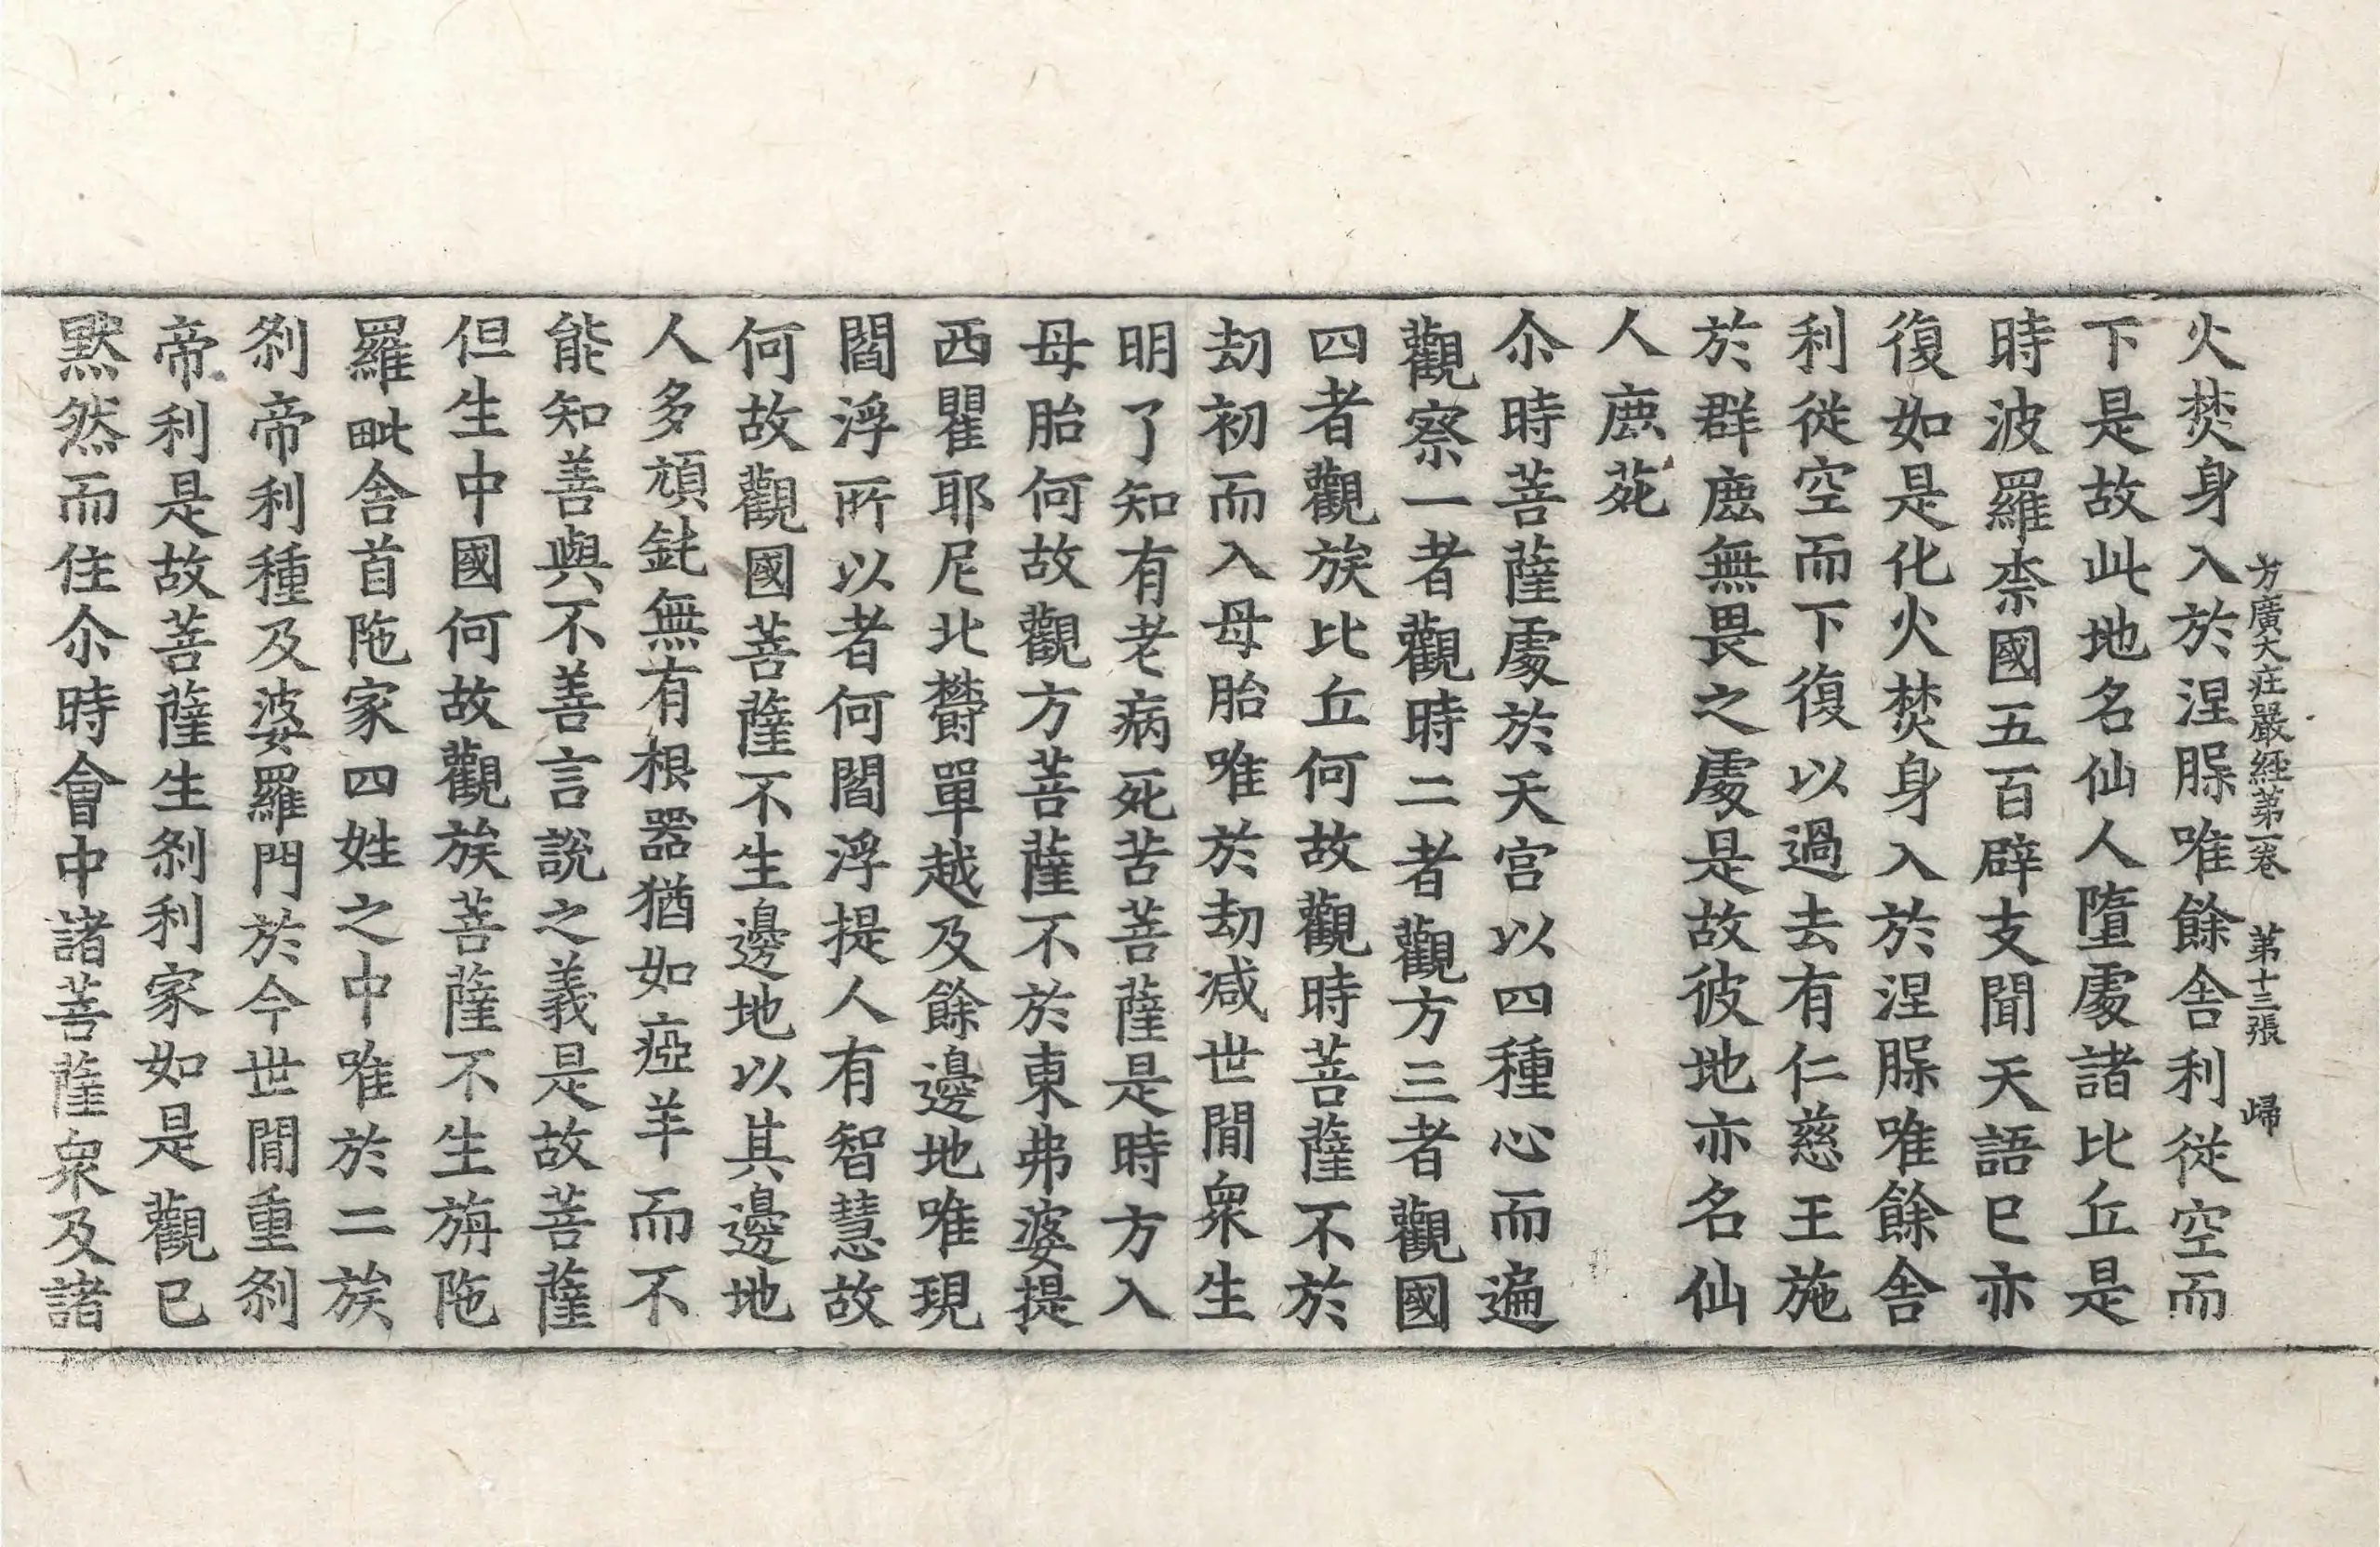 方廣大庄嚴經第一卷 第十三張 歸
火焚身入於涅槃唯餘舍利從空而
下是故此地名仙人墮處諸比丘是
時波羅柰國五百辟支聞天語已亦
復如是化火焚身入於涅槃唯餘舍
利從空而下復以過去有仁慈王施
於群鹿無畏之處是故彼地亦名仙
人鹿苑
尒時菩薩處於天宮以四種心而遍
觀察一者觀時二者觀方三者觀國
四者觀族比丘何故觀時菩薩不於
劫初而入母胎唯於劫减世閒衆生
明了知有老病死苦菩薩是時方入
母胎何故觀方菩薩不於東弗婆提
西瞿耶尼北欝單越及餘邊地唯現
閻浮所以者何閻浮提人有智慧故
何故觀國菩薩不生邊地以其邊地
人多頑鈍無有根器猶如瘂羊而不
能知善與不善言說之義是故菩薩
但生中國何故觀族菩薩不生旃陁
羅毗舍首陁家四姓之中唯於二族
刹帝利種及婆羅門於今世閒重刹
帝利是故菩薩生刹利家如是觀已
黙然而住尒時會中諸菩薩衆及諸